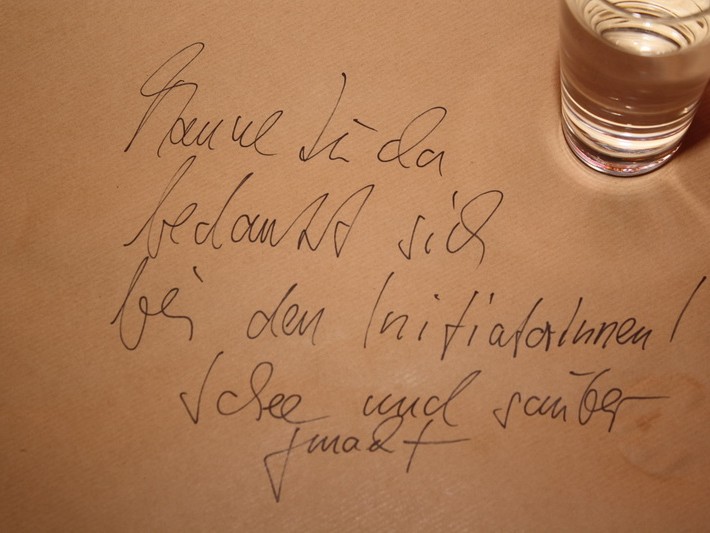 Hanne Lü da
bedankt sich
bei den InitiatorInnen!
Schee und sauber
gmacht